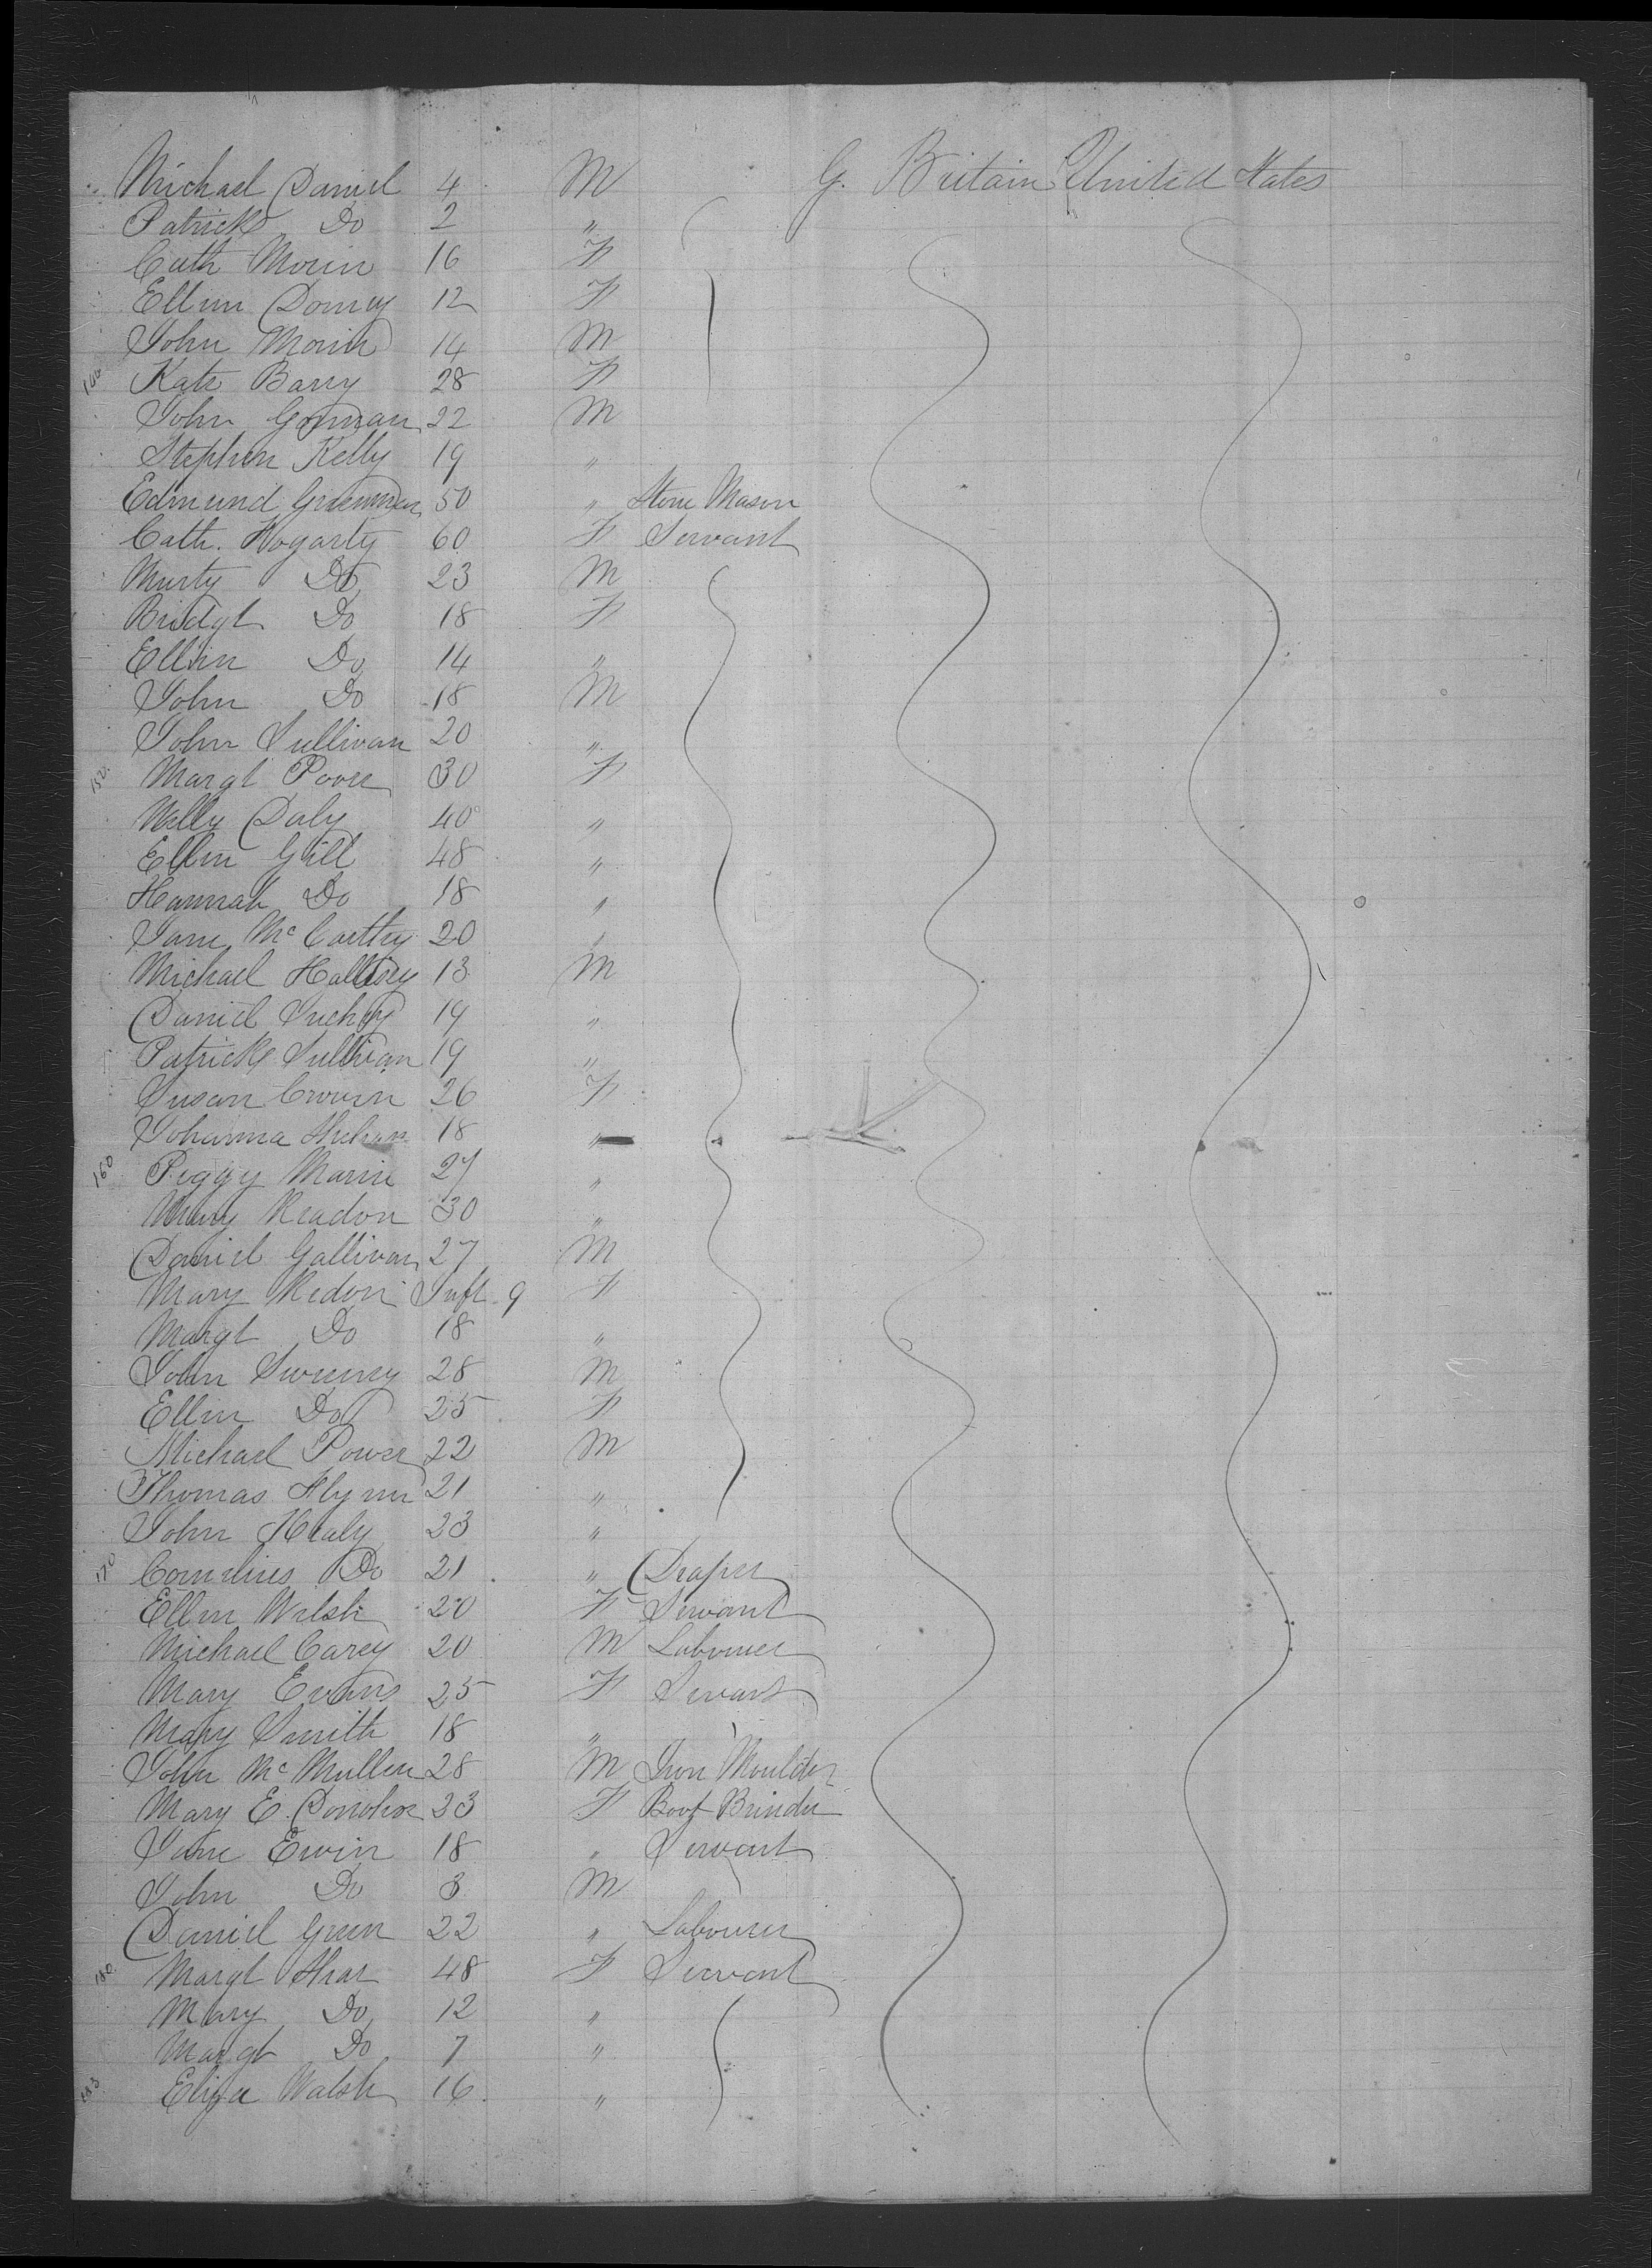 Michael Daniel 4 M G. Britain United States
Patrick Do 2 "
Cath Morin 16 F
Ellen Downey 12 F
John Morin 14 M
Kate Barry 28 F
John Gorman 22 M
Stephen Kelly 19 "
Edmund 50 " Stone Mason
Cath. Hogarty 60 F Servant
Murty Do 23 M
Bridgt Do 18 F
Ellen Do 14 "
John Do 18 M
John Sullivan 20 "
152 Margt Power 30 F
Nelly Daly 40 "
Ellen Gill 48 "
Hannah Do 18 "
Jane McCarthy 20 "
Michael Hallisey 13 M
Daniel 19 "
Patrick Sullivan 19 "
Susan Cronin 26 F
Johanna Shehan 18 "
160 Peggy Marin 27 "
Mary Readon 30 "
Daniel Gallivan 27 M
Mary Redon Inft 9 F
Margt Do 18 "
John Sweeney 28 M
Ellen Do 25 F
Michael Power 22 M
Thomas Flynn 21 "
John Healy 23 "
170 Cornelius Do 21 " Draper
Ellen Welsh 20 F Servant
Michael Carey 20 M Labourer
Mary Evans 25 F Servant
Mary Smith 18 "
John McMullen 28 M Iron Moulder
Mary E. Donohoe 23 F Boot Binder
Jane Ewin 18 " Servant
John Do 3 M
Daniel Green 22 " Labourer
180 Margt Shea 48 F Servant
Mary Do 12 "
Margt Do 7 "
183 Eliza Walsh 16 "